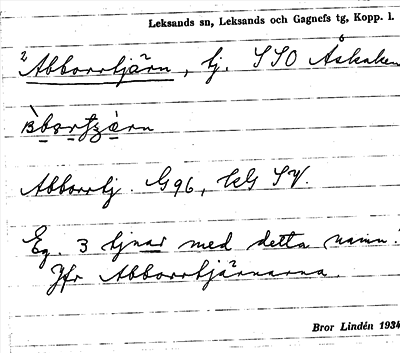 Leksands sn, Leksands och Gagnefs tg, Kopp. l.
2 Abborrtjärn, tj. SSO Åskaken
Abborrtj. G96, kG SV.
Eg. 3 tjnar med detta namn.
Jfr Abborrtjärnarna.
Bror Lindén 1934